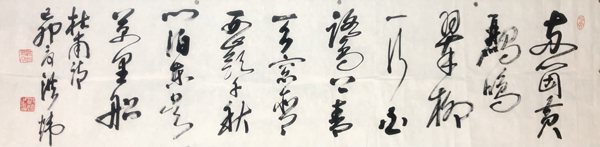 两箇黄
鸝鳴
翠柳
一行白
鷺上青
天窗
西嶺千秋
门泊東吴
萬里船
杜甫詩